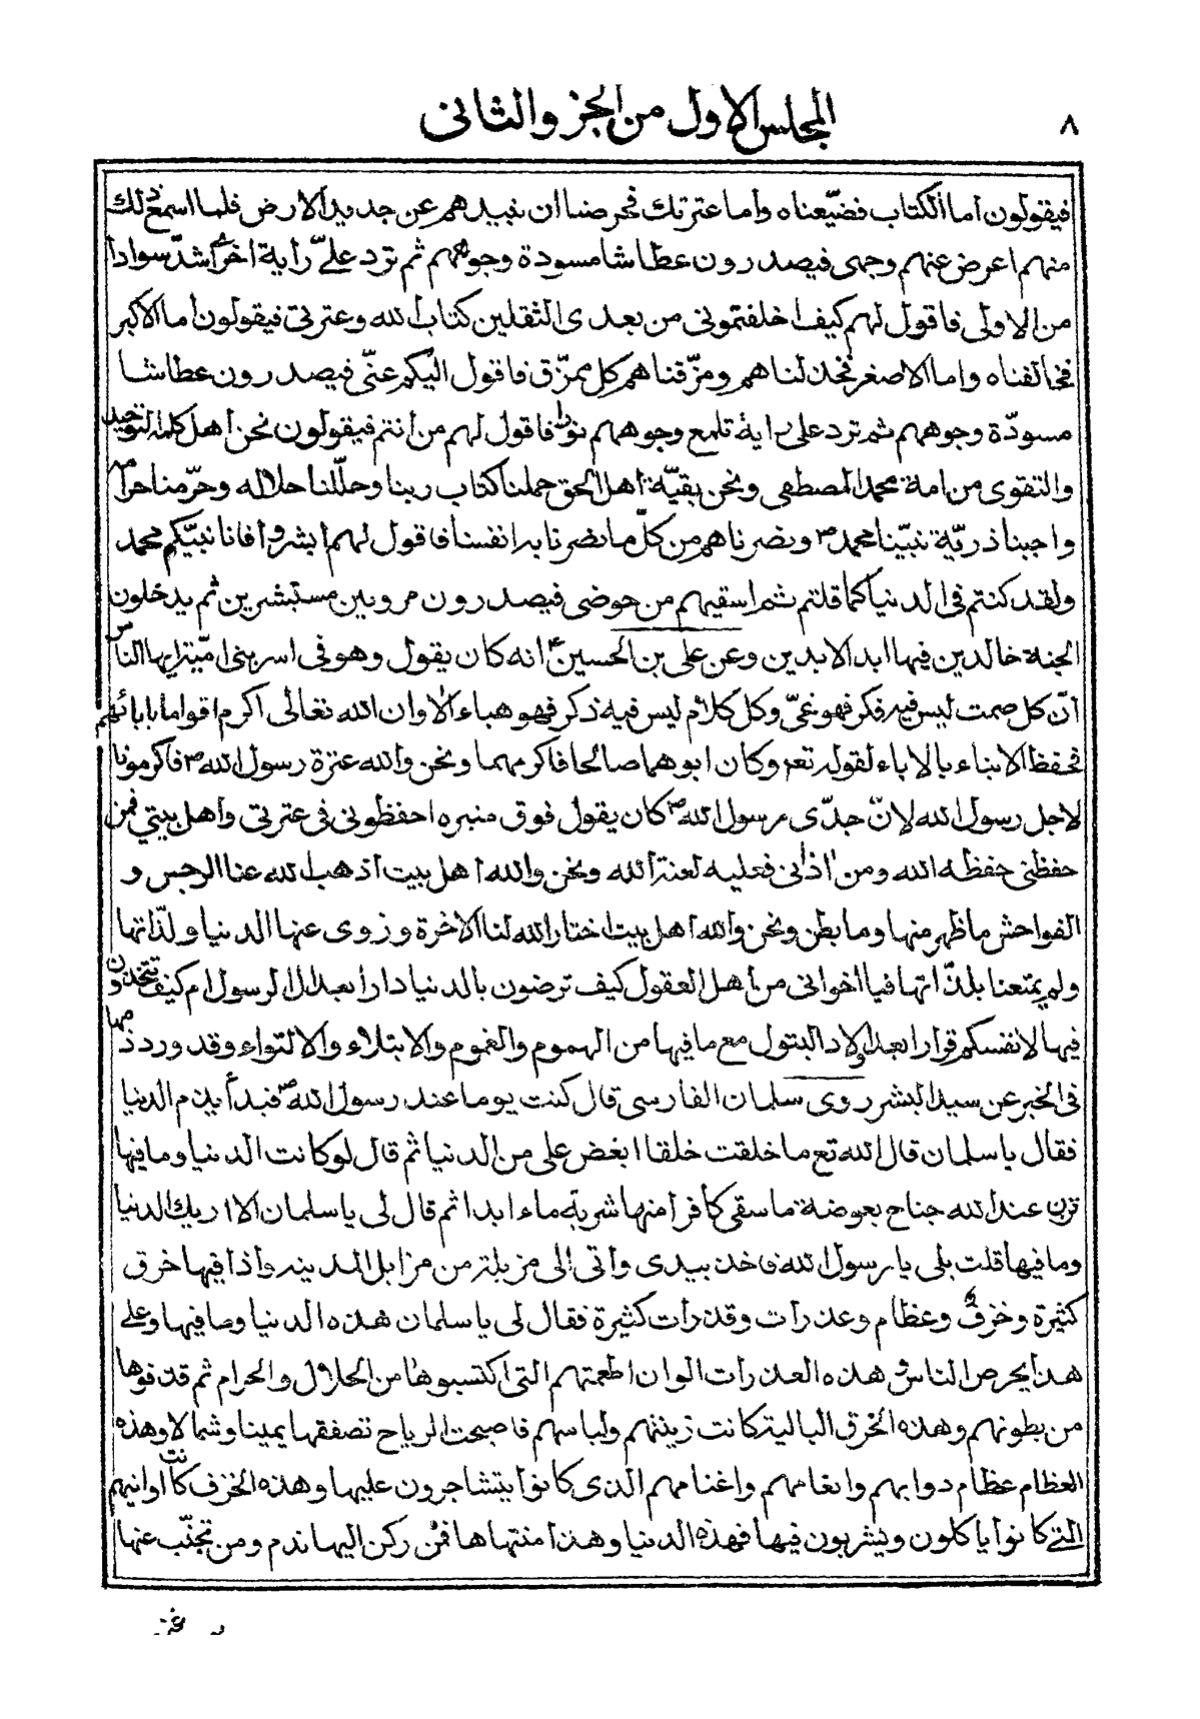 ٨
المجلس الاول من الجزء والثانى
فيقولون اما الكتاب فضيّعناه واما عترتك فحرصنا ان نبيدهم عن جديد الارض فلما اسمع ذلك
منهم اعرض عنهم وجهى فيصدرون عطاشا مسودة وجوههم ثم ترد علىّ رأية اخرى اشدّ سوادا
من الاولى فاقول لهم كيف اخلفتمونى من بعدى الثقلين كتاب الله وعترتى فيقولون اما الاكبر
فخالفناه واما الاصغر فخذلناهم ومزّقناهم كل ممزّق فاقول اليكم عنّى فيصدرون عطاشا
مسودّة وجوههم ثم ترد على راية تلمع وجوههم نورا فاقول لهم من انتم فيقولون نحن اهل كلمة التوحيد
والتقوى من امة محمد المصطفى ونحن بقيّة اهل الحق حملنا كتاب ربنا وحلّلنا حلاله وحرّمنا حرامه
واجبنا ذريّة نبيّنا محمد ص ونصرناهم من كلّ ما نصرنا به انفسنا فاقول لهم ابشروا فانا نبيّكم محمد
ولقد كنتم فى الدنيا كما قلتم ثم اسقيهم من حوضى فيصدرون مرويين مستبشرين ثم يدخلون
الجنة خالدين فيها ابد الابدين وعن على بن الحسين ع انه كان يقول وهو فى اسر بنى اميّة ايها الناس
انّ كل صمت ليس فيه فكر فهو عىّ وكل كلام ليس فيه ذكر فهو هباء الا وان الله تعالى اكرم اقواما بابائهم
فحفظ الابناء بالاباء لقوله تعم وكان ابوهما صالحا فاكرمهما ونحن والله عترة رسول الله ص فاكرمونا
لاجل رسول الله لانّ جدّى رسول الله ص كان يقول فوق منبره احفظونى فى عترتى واهل بيتي فمن
حفظنى حفظه الله ومن اذانى فعليه لعنة الله ونحن والله اهل بيت اذهب الله عنا الرجس و
الفواحش ما ظهر منها وما بطن ونحن والله اهل بيت اختار الله لنا الاخرة وزوى عنها الدنيا ولذّاتها
ولم يمتعنا بلذّاتها فيا اخوانى من اهل العقول كيف ترضون بالدنيا دارا بعد ال الرسول ام كيف تتخذون
فيها لانفسكم قرارا بعد اولاد البتول مع ما فيها من الهموم والغموم والابتلاء والالتواء وقد ورد ذمها
فى الخبر عن سيد البشر روى سلمان الفارسى قال كنت يوما عند رسول الله ص فبدأ بذم الدنيا
فقال يا سلمان قال الله تع ما خلقت خلقا ابغض على من الدنيا ثم قال لو كانت الدنيا وما فيها
تزن عند الله جناح بعوضة ما سقى كافرا منها شربة ماء ابدا ثم قال لى يا سلمان الا اريك الدنيا
وما فيها قلت بلى يا رسول الله فاخذ بيدى واتى الى مزبلة من مزابل المدينه واذا فيها خرق
كثيرة وخزف وعظام وعذرات وقذرات كثيرة فقال لى يا سلمان هذه الدنيا وما فيها وعلى
هذا يحرص الناس وهذه العذرات الوان اطعمتهم التى اكتسبوها من الحلال والحرام ثم قذفوها
من بطونهم وهذه الخرق البالية كانت زينتهم ولباسهم فاصبحت الرياح تصفقها يمينا وشمالا وهذه
العظام عظام دوابهم وانعامهم واغنامهم الذى كانوا يتشاجرون عليها وهذه الخزف كانت اوانيهم
التى كانوا ياكلون ويشربون فيها فهذه الدنيا وهذا منتهاها فمن ركن اليها ندم ومن تجنّب عنها